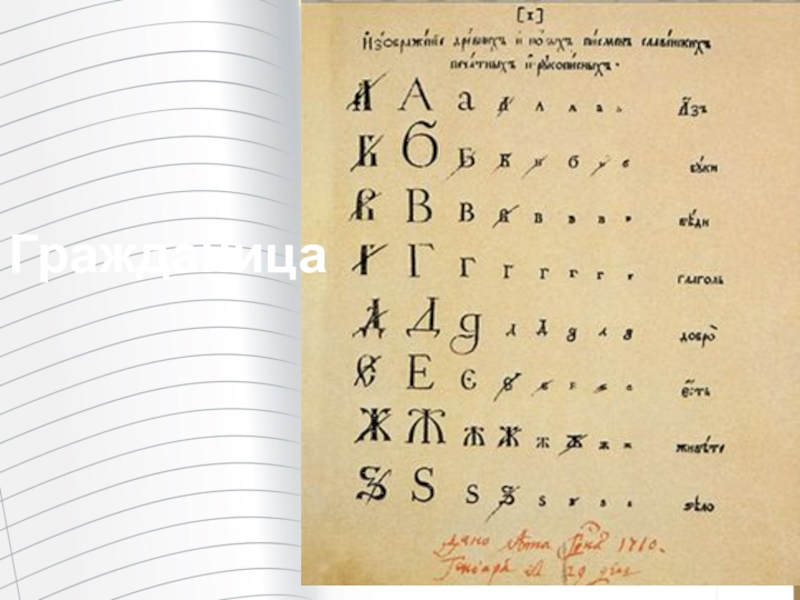 Гражданица
[1]
Изображенїе древнихъ и новыхъ писменъ славенскихъ
печатныхъ и рукописныхъ.
А А а А А А а а Азъ
Б Б Б Б Б б буки
В В В В В В В вѣди
Г Г Г Г Г Г Г глаголь
Д Д д д Д д д д добро
Є Е є есть
Ж Ж ж Ж ж ж ж ж живѣте
Ѕ Ѕ ѕ Ѕ ѕ ѕ ѕ ѕ ѕѣло
дано лѣта 1710.
Генваря 29 дня